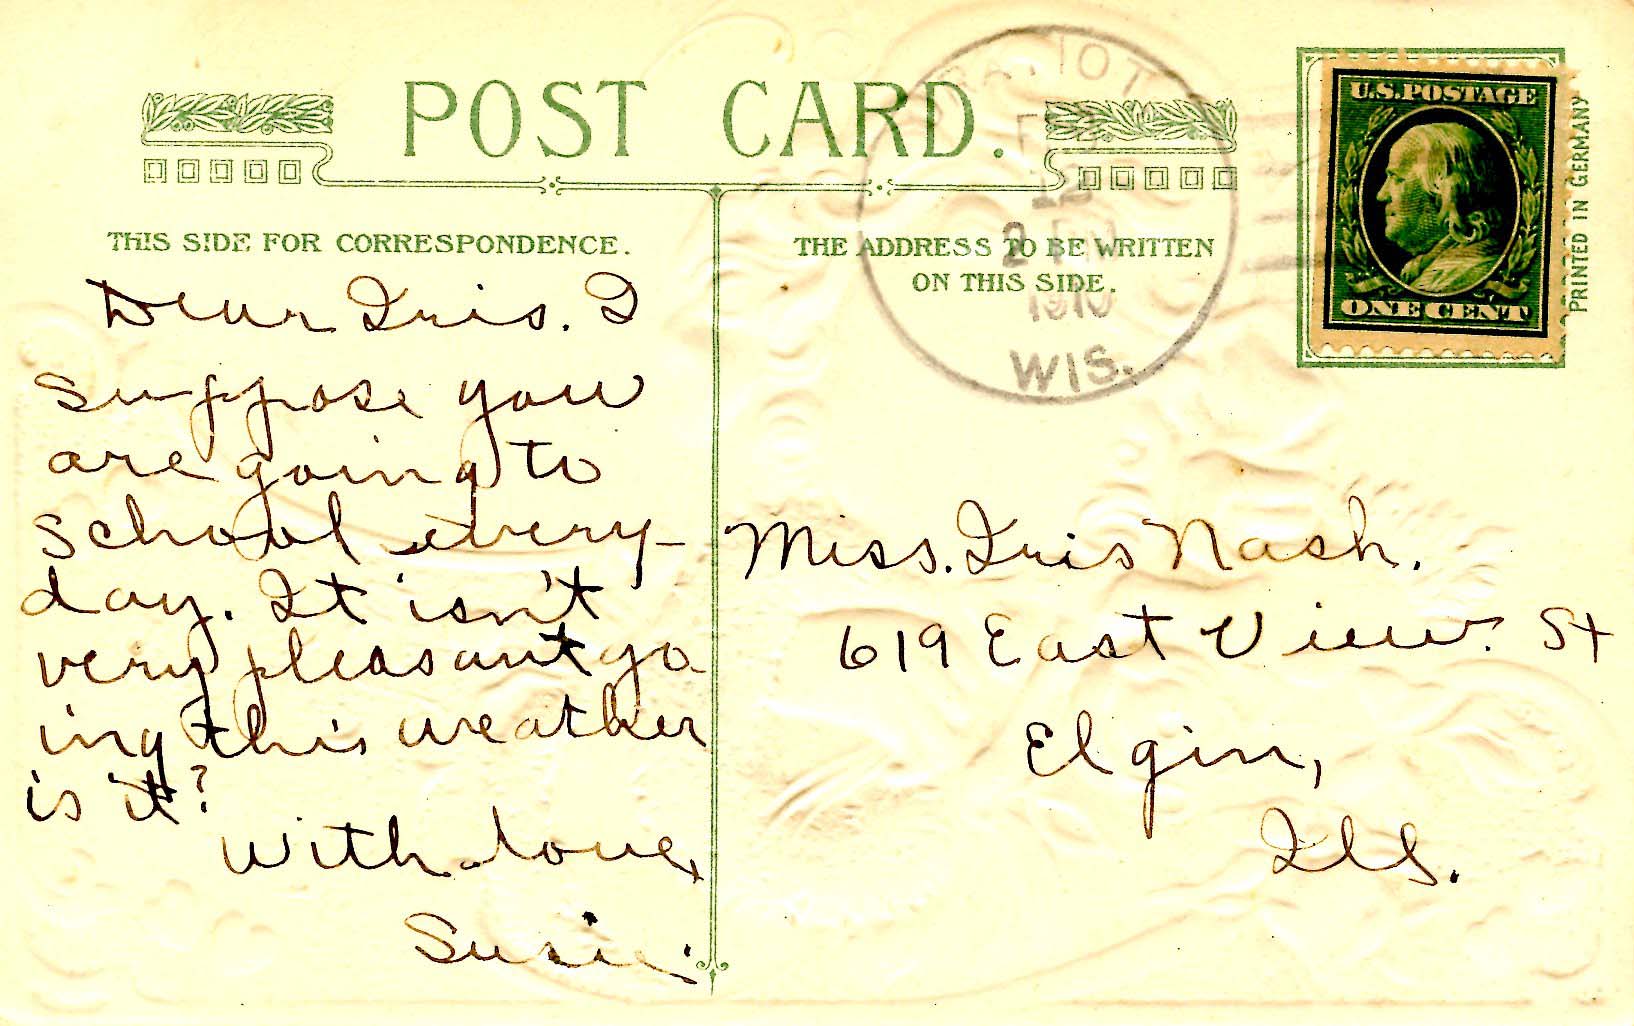 POST CARD.
THIS SIDE FOR CORRESPONDENCE.
Dear Iris. I
suppose you
are going to
school every-
day. It isn't
very pleasant go
ing this weather
is it?
With love,
Susie.
THE ADDRESS TO BE WRITTEN
ON THIS SIDE.
Miss. Iris Nash.
619 East View. St
Elgin,
Ills.
FEB
12
1910
WIS.
U.S. POSTAGE
ONE CENT
PRINTED IN GERMANY